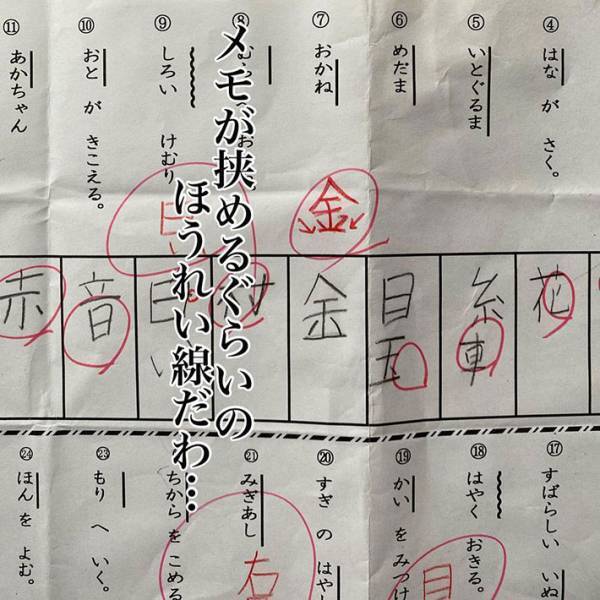 メモが挟めるぐらいの
ほうれい線だわ…
④ はな が さく。
⑤ いとぐるま
⑥ めだま
⑦ おかね
⑧
⑨ しろい けむり
⑩ おと が きこえる。
⑪ あかちゃん
金
花
糸車
目玉
金
村
音
赤
⑰ すばらしい いぬ
⑱ はやく おきる。
⑲ かい を みつけ
⑳ すぎ の はや
㉑ みぎあし
ちから を こめる
㉓ もり へ いく。
㉔ ほん を よむ。
右